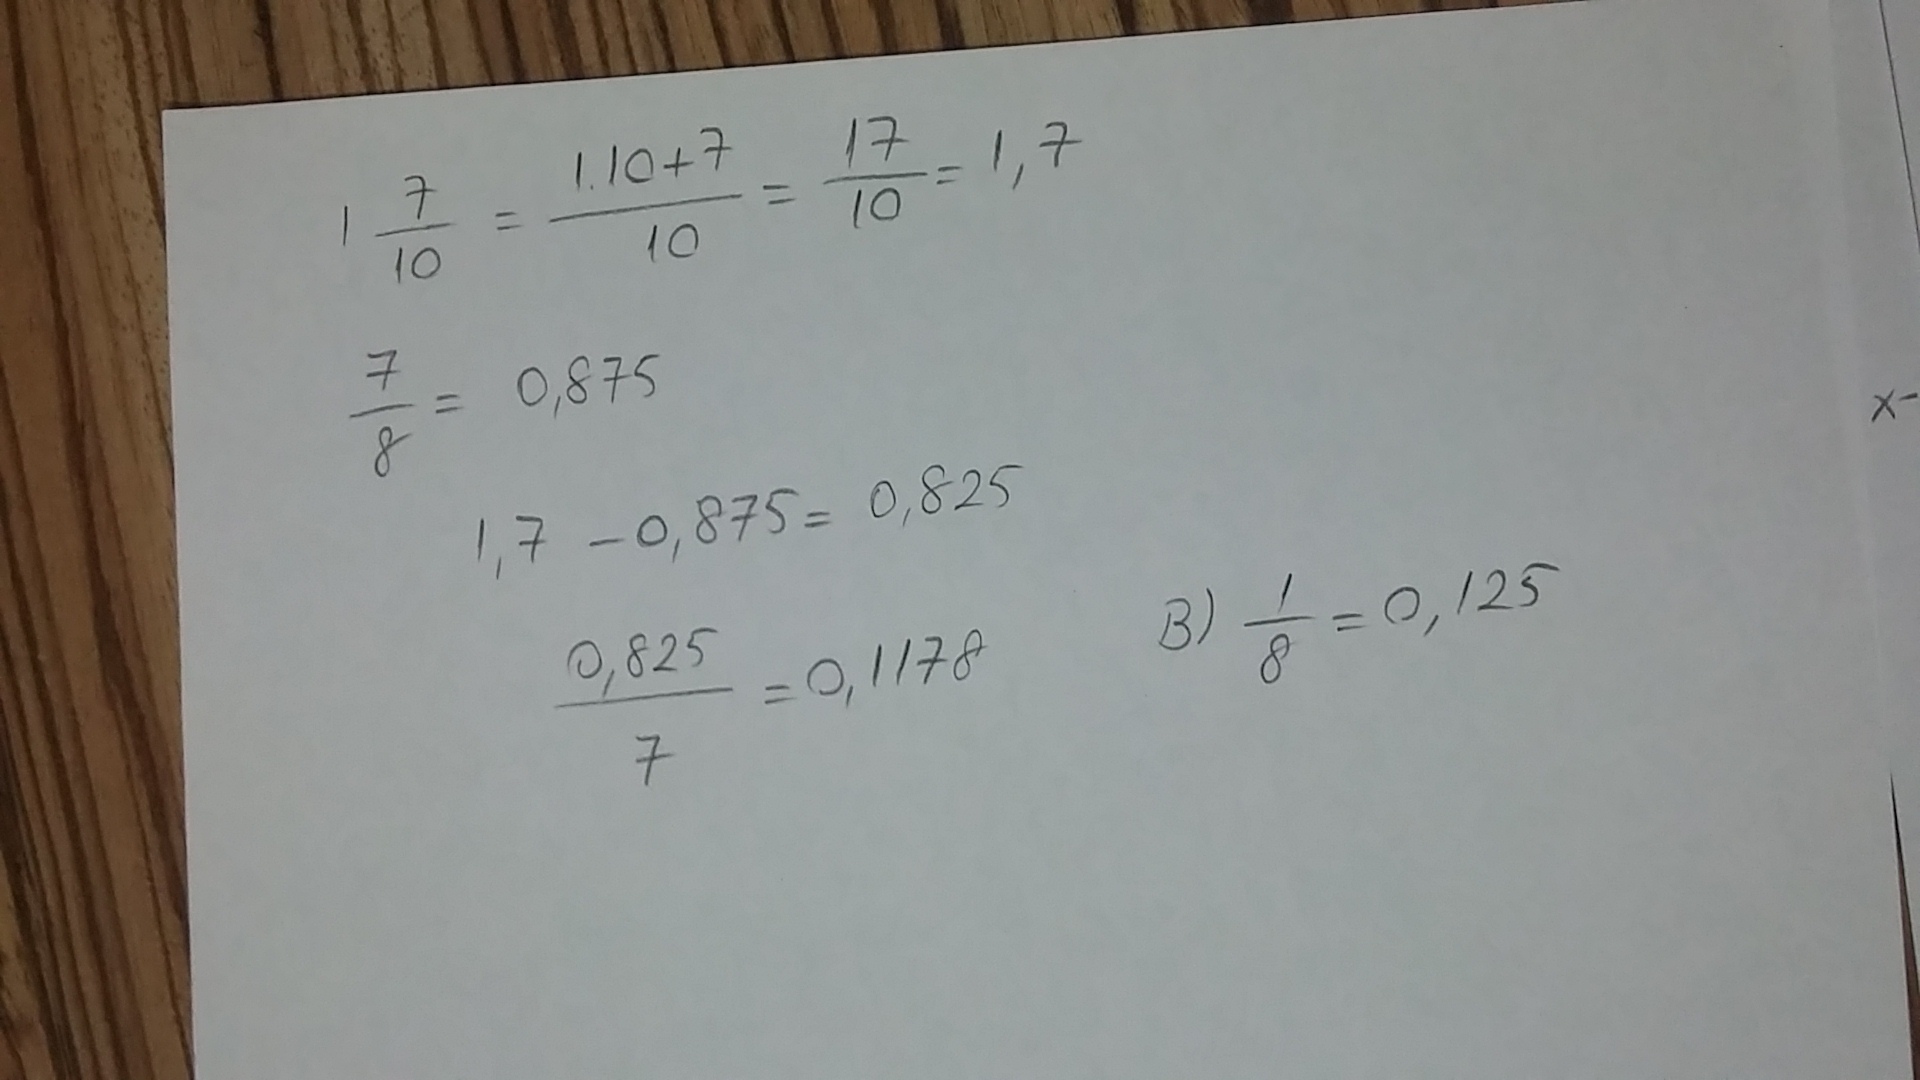 1 7/10 = 1.10+7/10 = 17/10 = 1,7
7/8 = 0,875
1,7 - 0,875 = 0,825
0,825/7 = 0,1178
B) 1/8 = 0,125
x-